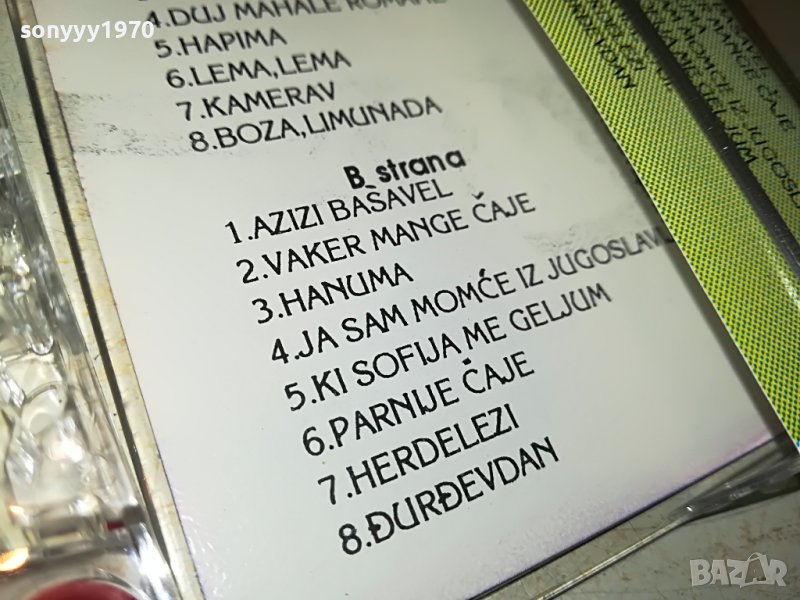 sonyyy1970
4.DUJ MAHALE ROMANE
5.HAPIMA
6.LEMA,LEMA
7.KAMERAV
8.BOZA,LIMUNADA
B strana
1.AZIZI BAŠAVEL
2.VAKER MANGE ČAJE
3.HANUMA
4.JA SAM MOMĆE IZ JUGOSLAVI
5.KI SOFIJA ME GELJUM
6.PARNIJE ČAJE
7.HERDELEZI
8.ĐURĐEVDAN
MANGE ČAJE
MOMCE IZ JUGOSL
ME GELJUM
EVDAN
BAZAR